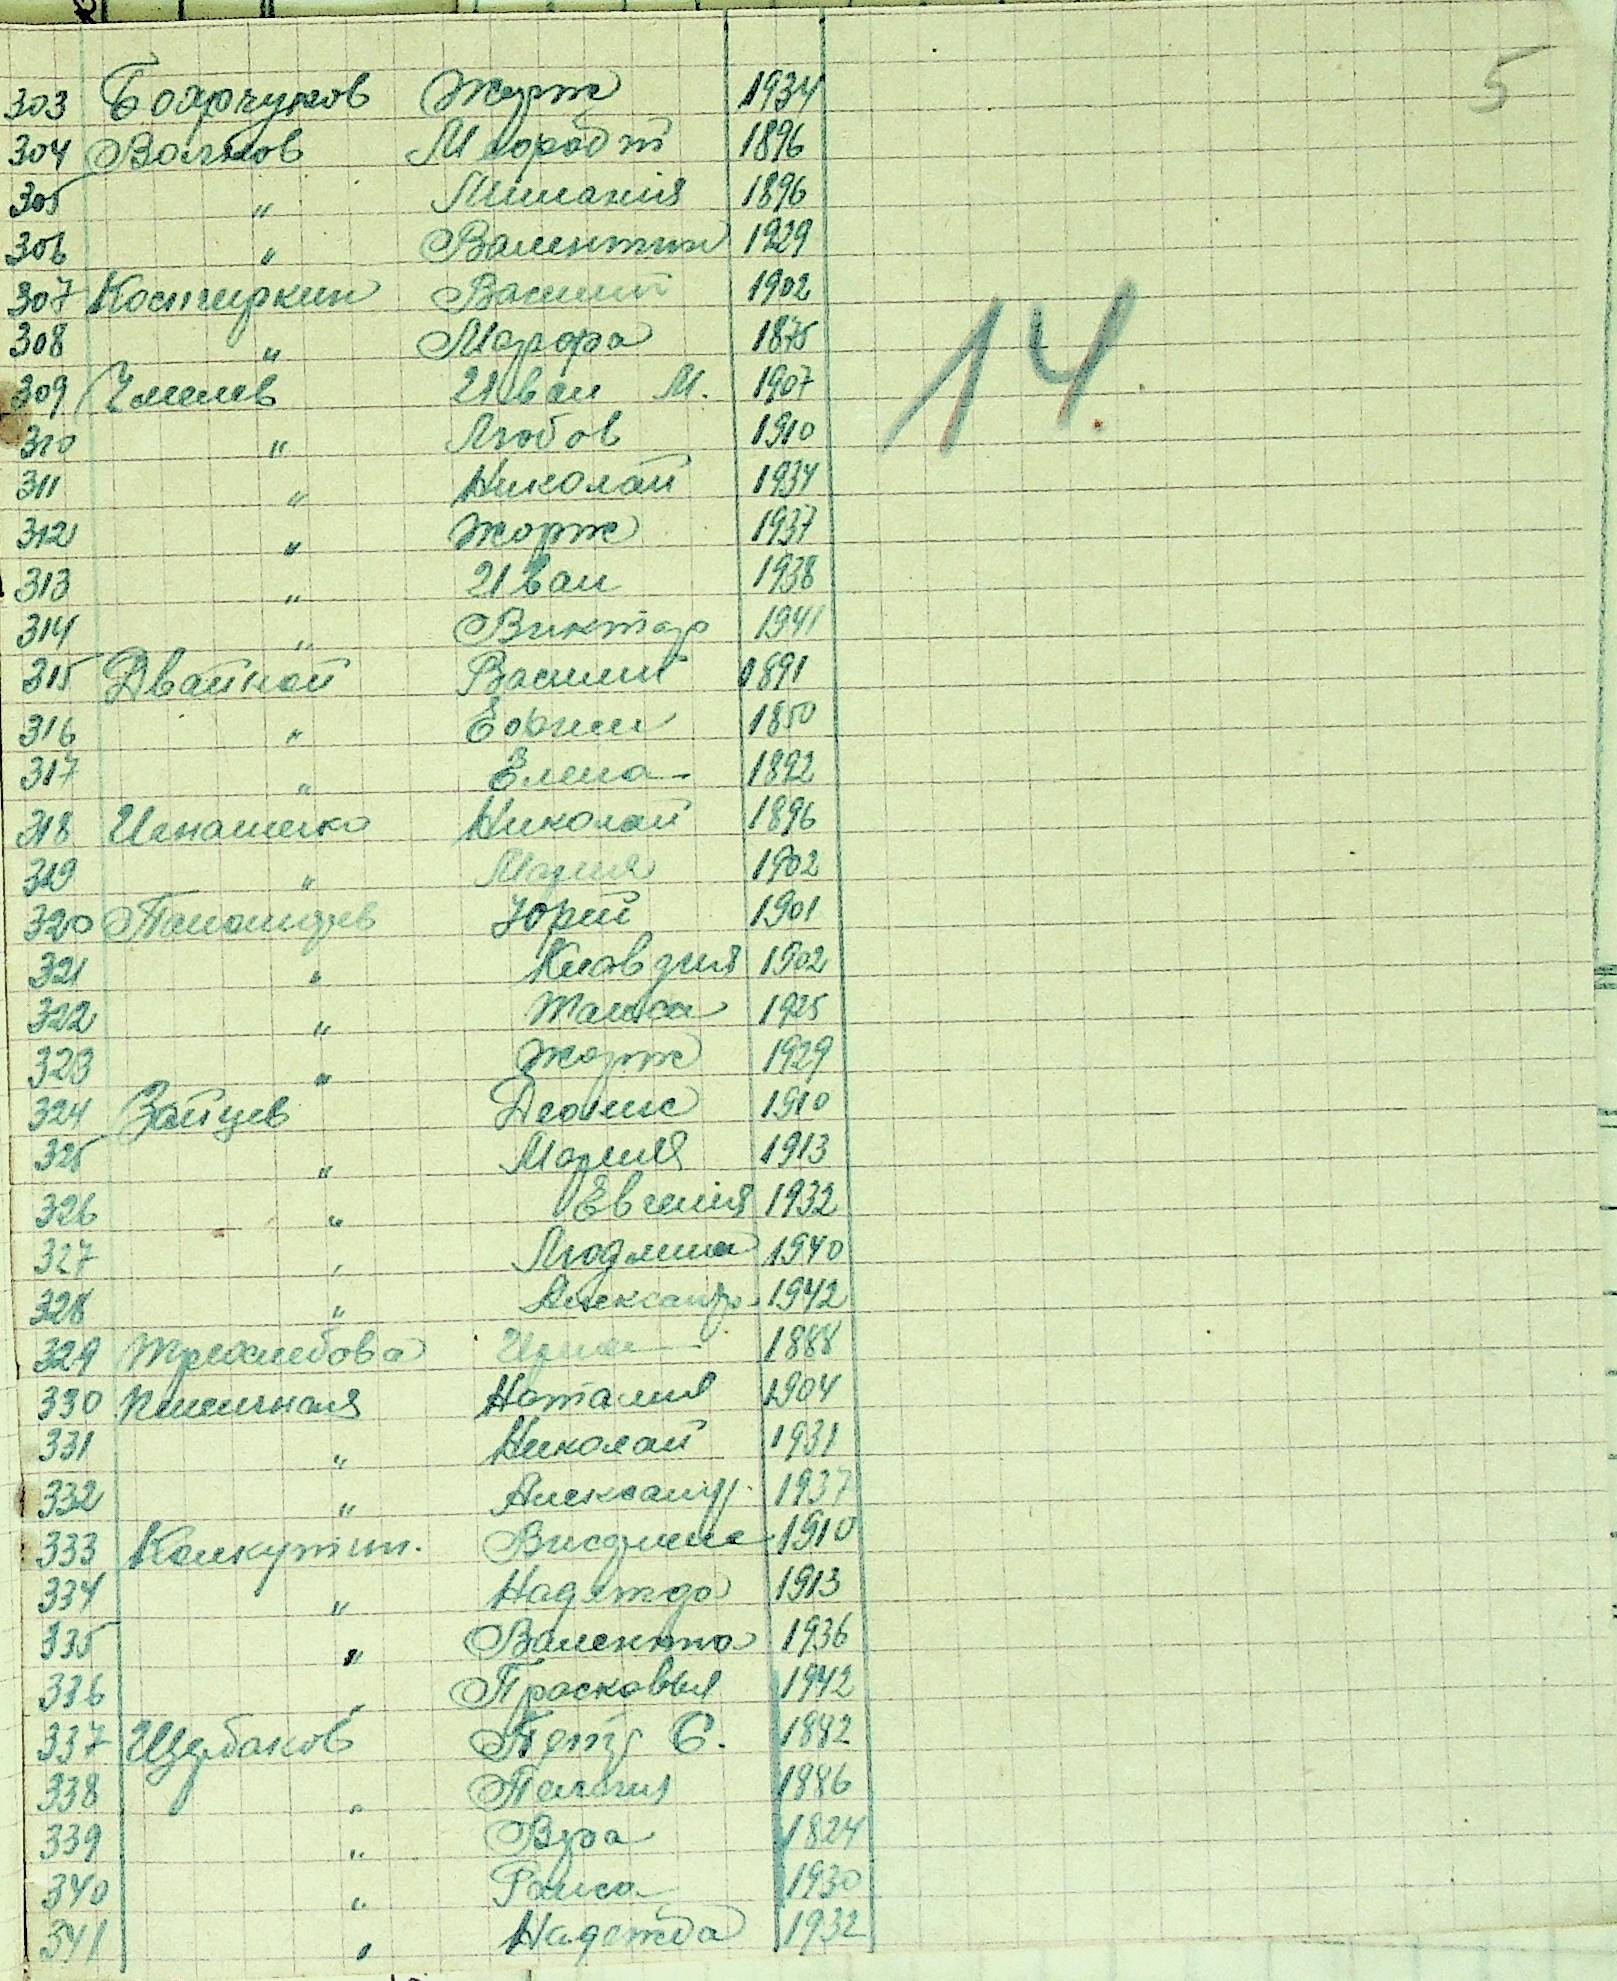 5
303 Боярчуков Жорж 1934
304 Волков Мефодий 1896
305 " Мимания 1896
306 " Валентин 1929
307 Костиркин Василий 1902
308 " Марфа 1875
309 Чмелев Иван М. 1907
310 " Любов 1910
311 " Николай 1934
312 " Жорж 1937
313 " Иван 1938
314 " Виктор 1941
14.
315 Двайной Василий 1891
316 " 1850
317 " Елена 1892
318 Игнашенко Николай 1896
319 " Мария 1902
320 Юрий 1901
321 " Клавдия 1902
322 " 1925
323 " Жорж 1929
324 Зайцев Деонис 1910
325 " Мария 1913
326 " Евгения 1932
327 " Людмила 1940
328 " Александр. 1942
329 Трехлебова Ирина 1888
330 Пшеничная Наталия 1904
331 " Николай 1931
332 " Александр. 1937
333 Калкутин. 1910
334 " Надежда 1913
335 " Валентна 1936
336 " Прасковья 1942
337 Щербаков Петр С. 1882
338 " Палагия 1886
339 " Вера 1824
340 " Раиса 1930
341 " Надежда 1932